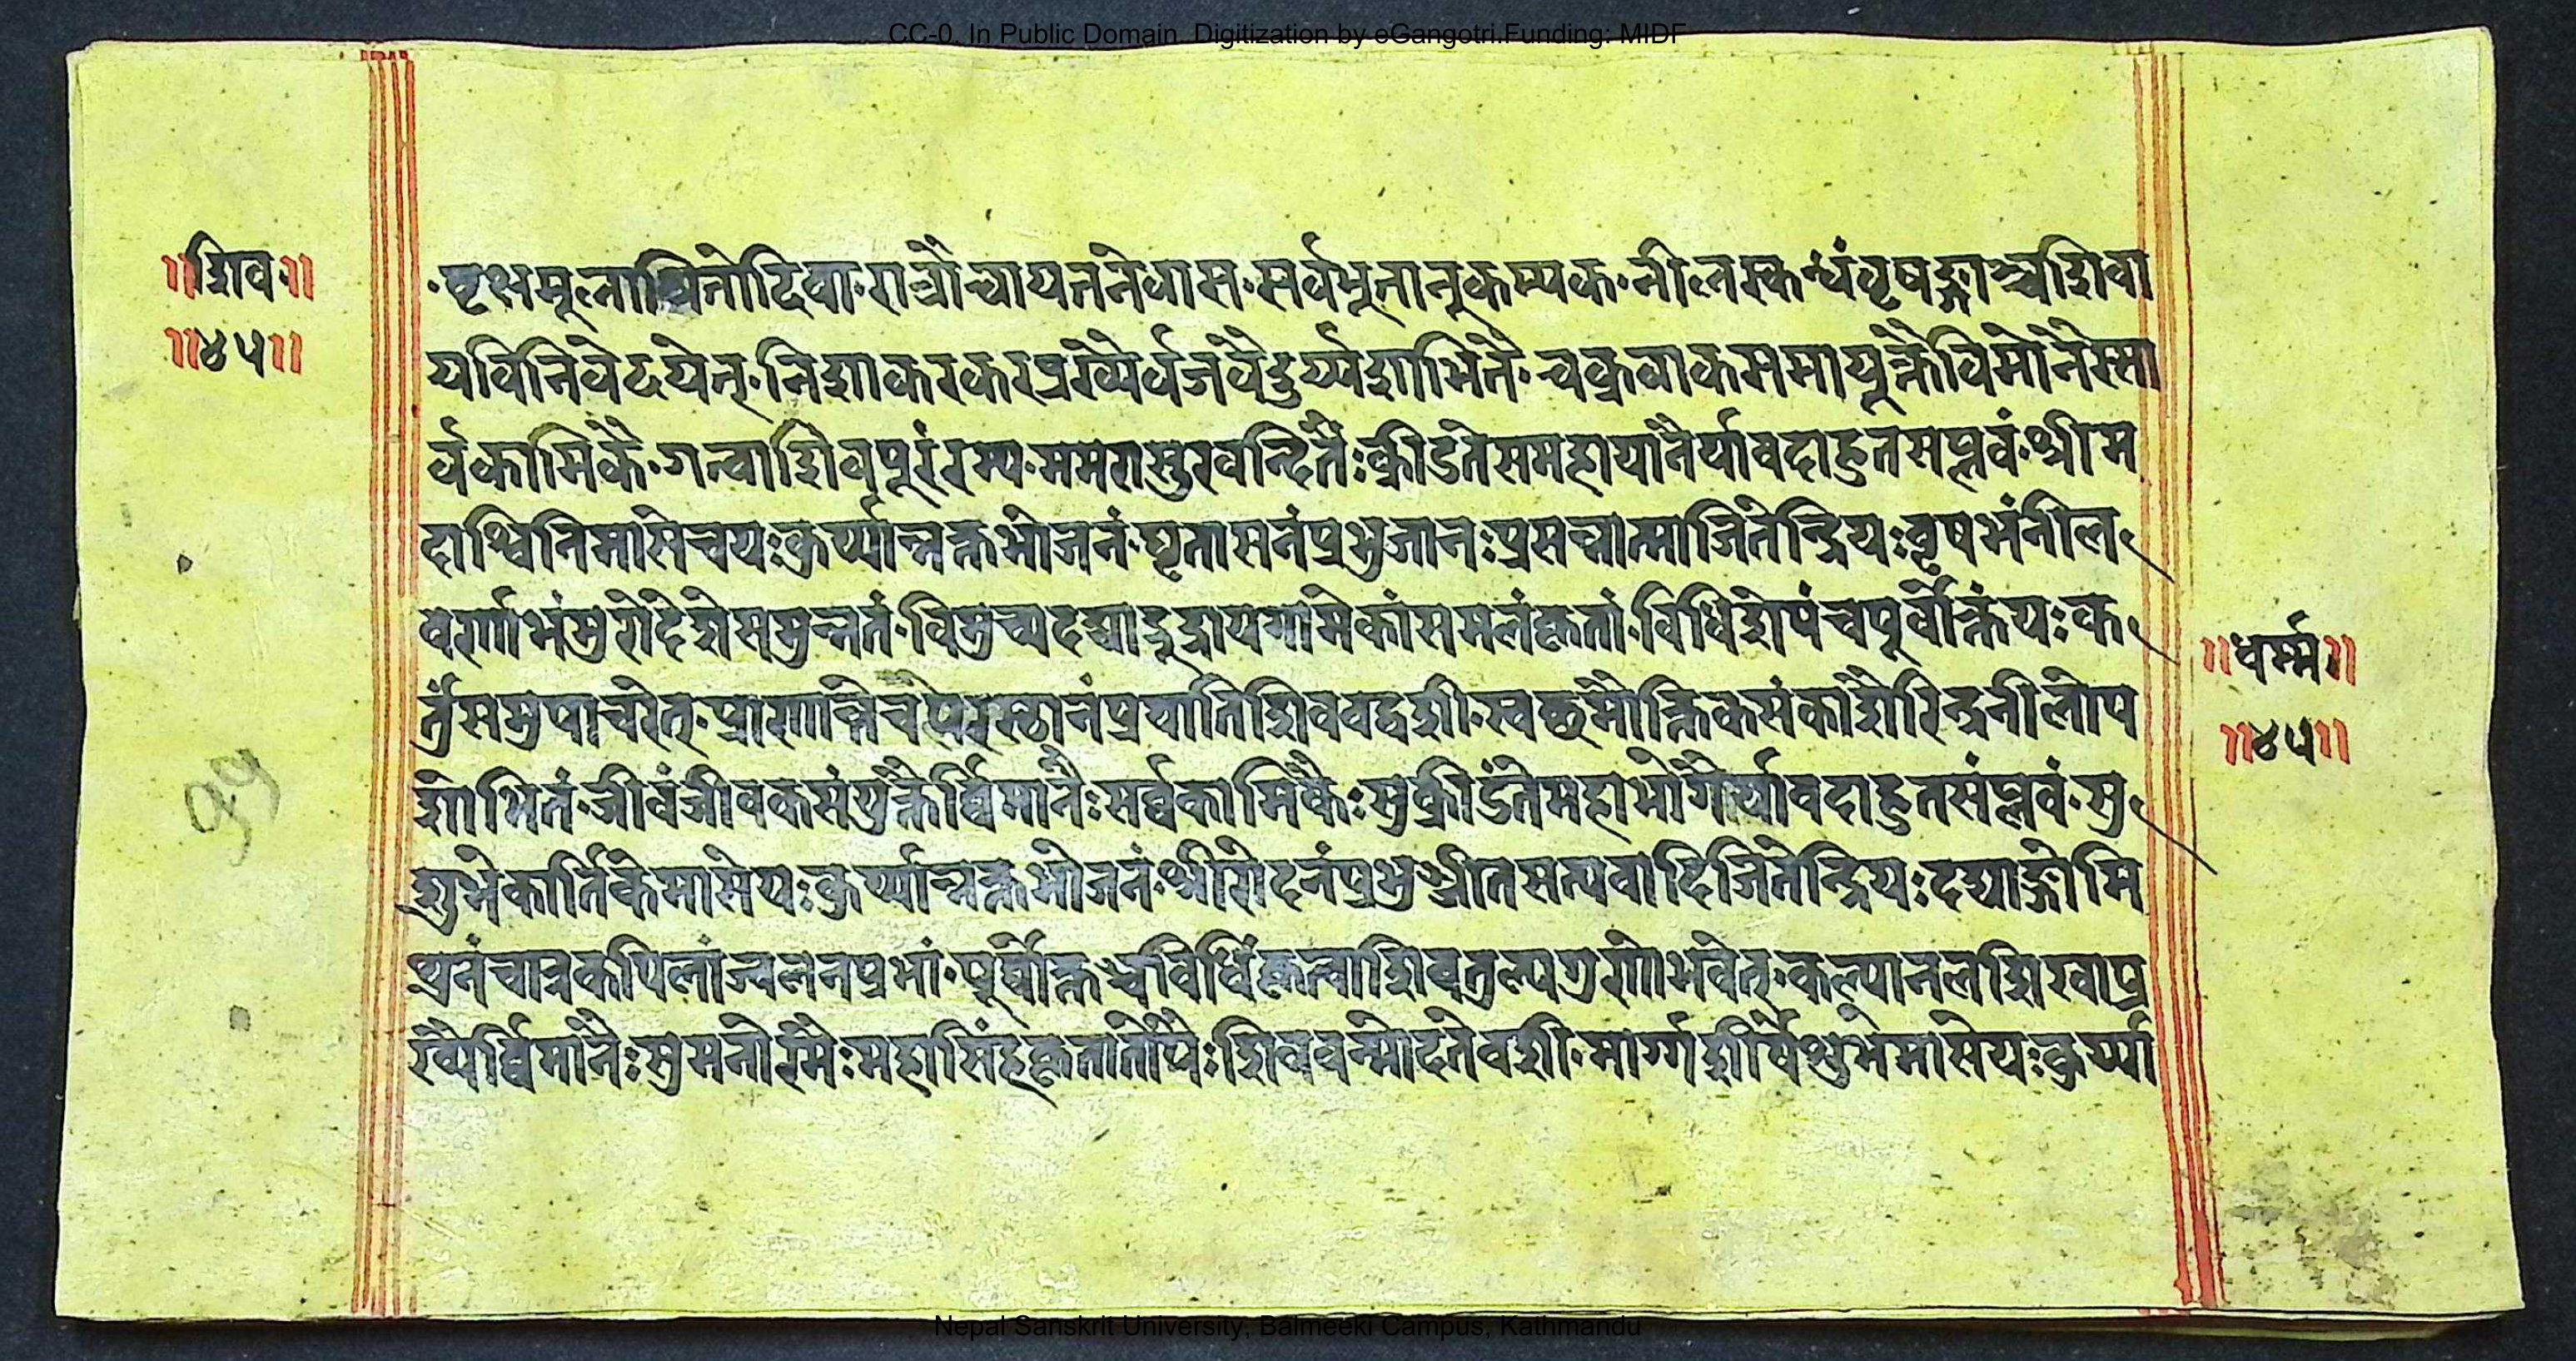 CC-0. In Public Domain. Digitization by eGangotri.Funding: MIDF
॥शिव॥
॥४५॥
वृक्षमूलाश्रितोदिवा रात्रौचायतनेवास सर्वभूतानुकम्पक नीलस्कन्धंवृषङ्गाञ्चशिवा
यविनिवेदयेत् निशाकरकरप्रख्येर्वजवैदुर्य्यशोभितै चक्रवाकसमायूक्तैविमानैस्सा
र्वकामिकै गत्वाशिवपूरंरम्य ममरासुरवन्दितंः क्रीडतेसमहायानैर्यावदाहुतसप्लवं श्रीम
दाश्विनिमासेचयःकुर्य्यान्नक्तभोजनं घृतासनंप्रभुजानःप्रसन्नात्माजितेन्द्रियःवृषभंनील
वर्णाभंमुरोदेशेसमुन्नतं विमुच्यदद्याद्रूद्रायगामेकांसमलंकृतां विधिशेषंचपूर्वोक्तंयःक
र्तुंसमुपाचरेत् प्राणान्तिचपरस्छानंप्रयातिशिववद्वशी स्वछमौक्तिकसंकाशैरिन्द्रनीलोप
शोभितं जीवंजीवकसंयुक्तैर्व्विमानैःसर्व्वकामिकैःसुक्रीडंतेमहाभोगैर्य्यावदाहुतसंप्लवं सु
शुभेकार्तिकेमासेयःकुर्य्यान्नक्तभोजनं क्षीरोदनंप्रभुञ्जीतसत्यवादिजितेन्द्रियःदद्याङ्गोमि
थुनंचात्रकपिलांज्वलनप्रभां पूर्व्वोक्तञ्चविधिंकृत्वाशिवतुल्यगुणोभवेत् कल्पानलशिखाप्र
ख्यैर्व्विमानैःसुमनोरमैःमहासिंहकृतातोपैःशिववन्मोदतेवशी मार्ग्गशीर्षेशुभमासेयःकुर्य्या
॥धर्म्म॥
॥४५॥
Nepal Sanskrit University, Balmeeki Campus, Kathmandu